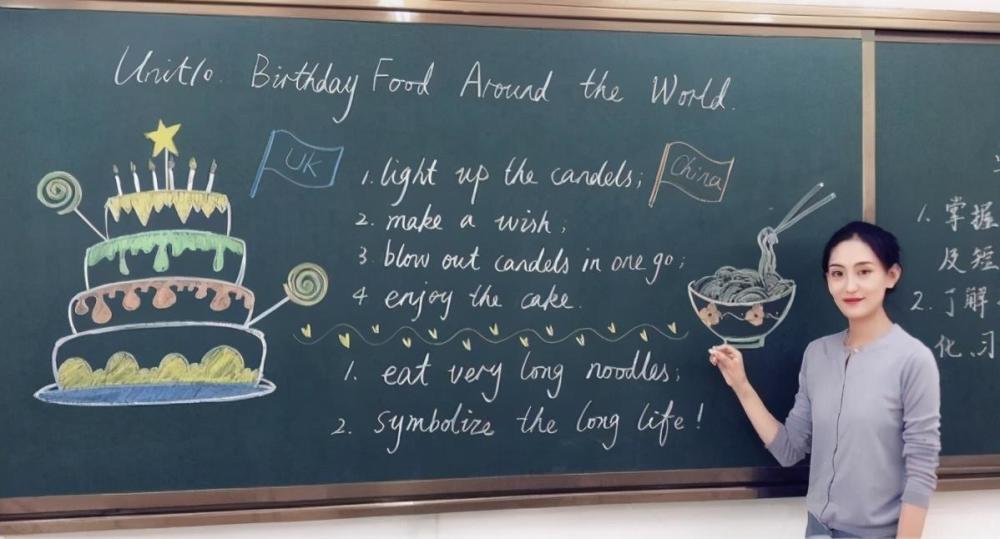 Unit10. Birthday Food Around the World.
UK
1. light up the candels;
China
2. make a wish;
3. blow out candels in one go;
4 enjoy the cake.
1. eat very long noodles;
2. symbolize the long life!
1. 掌握
及短
2. 了解
化习